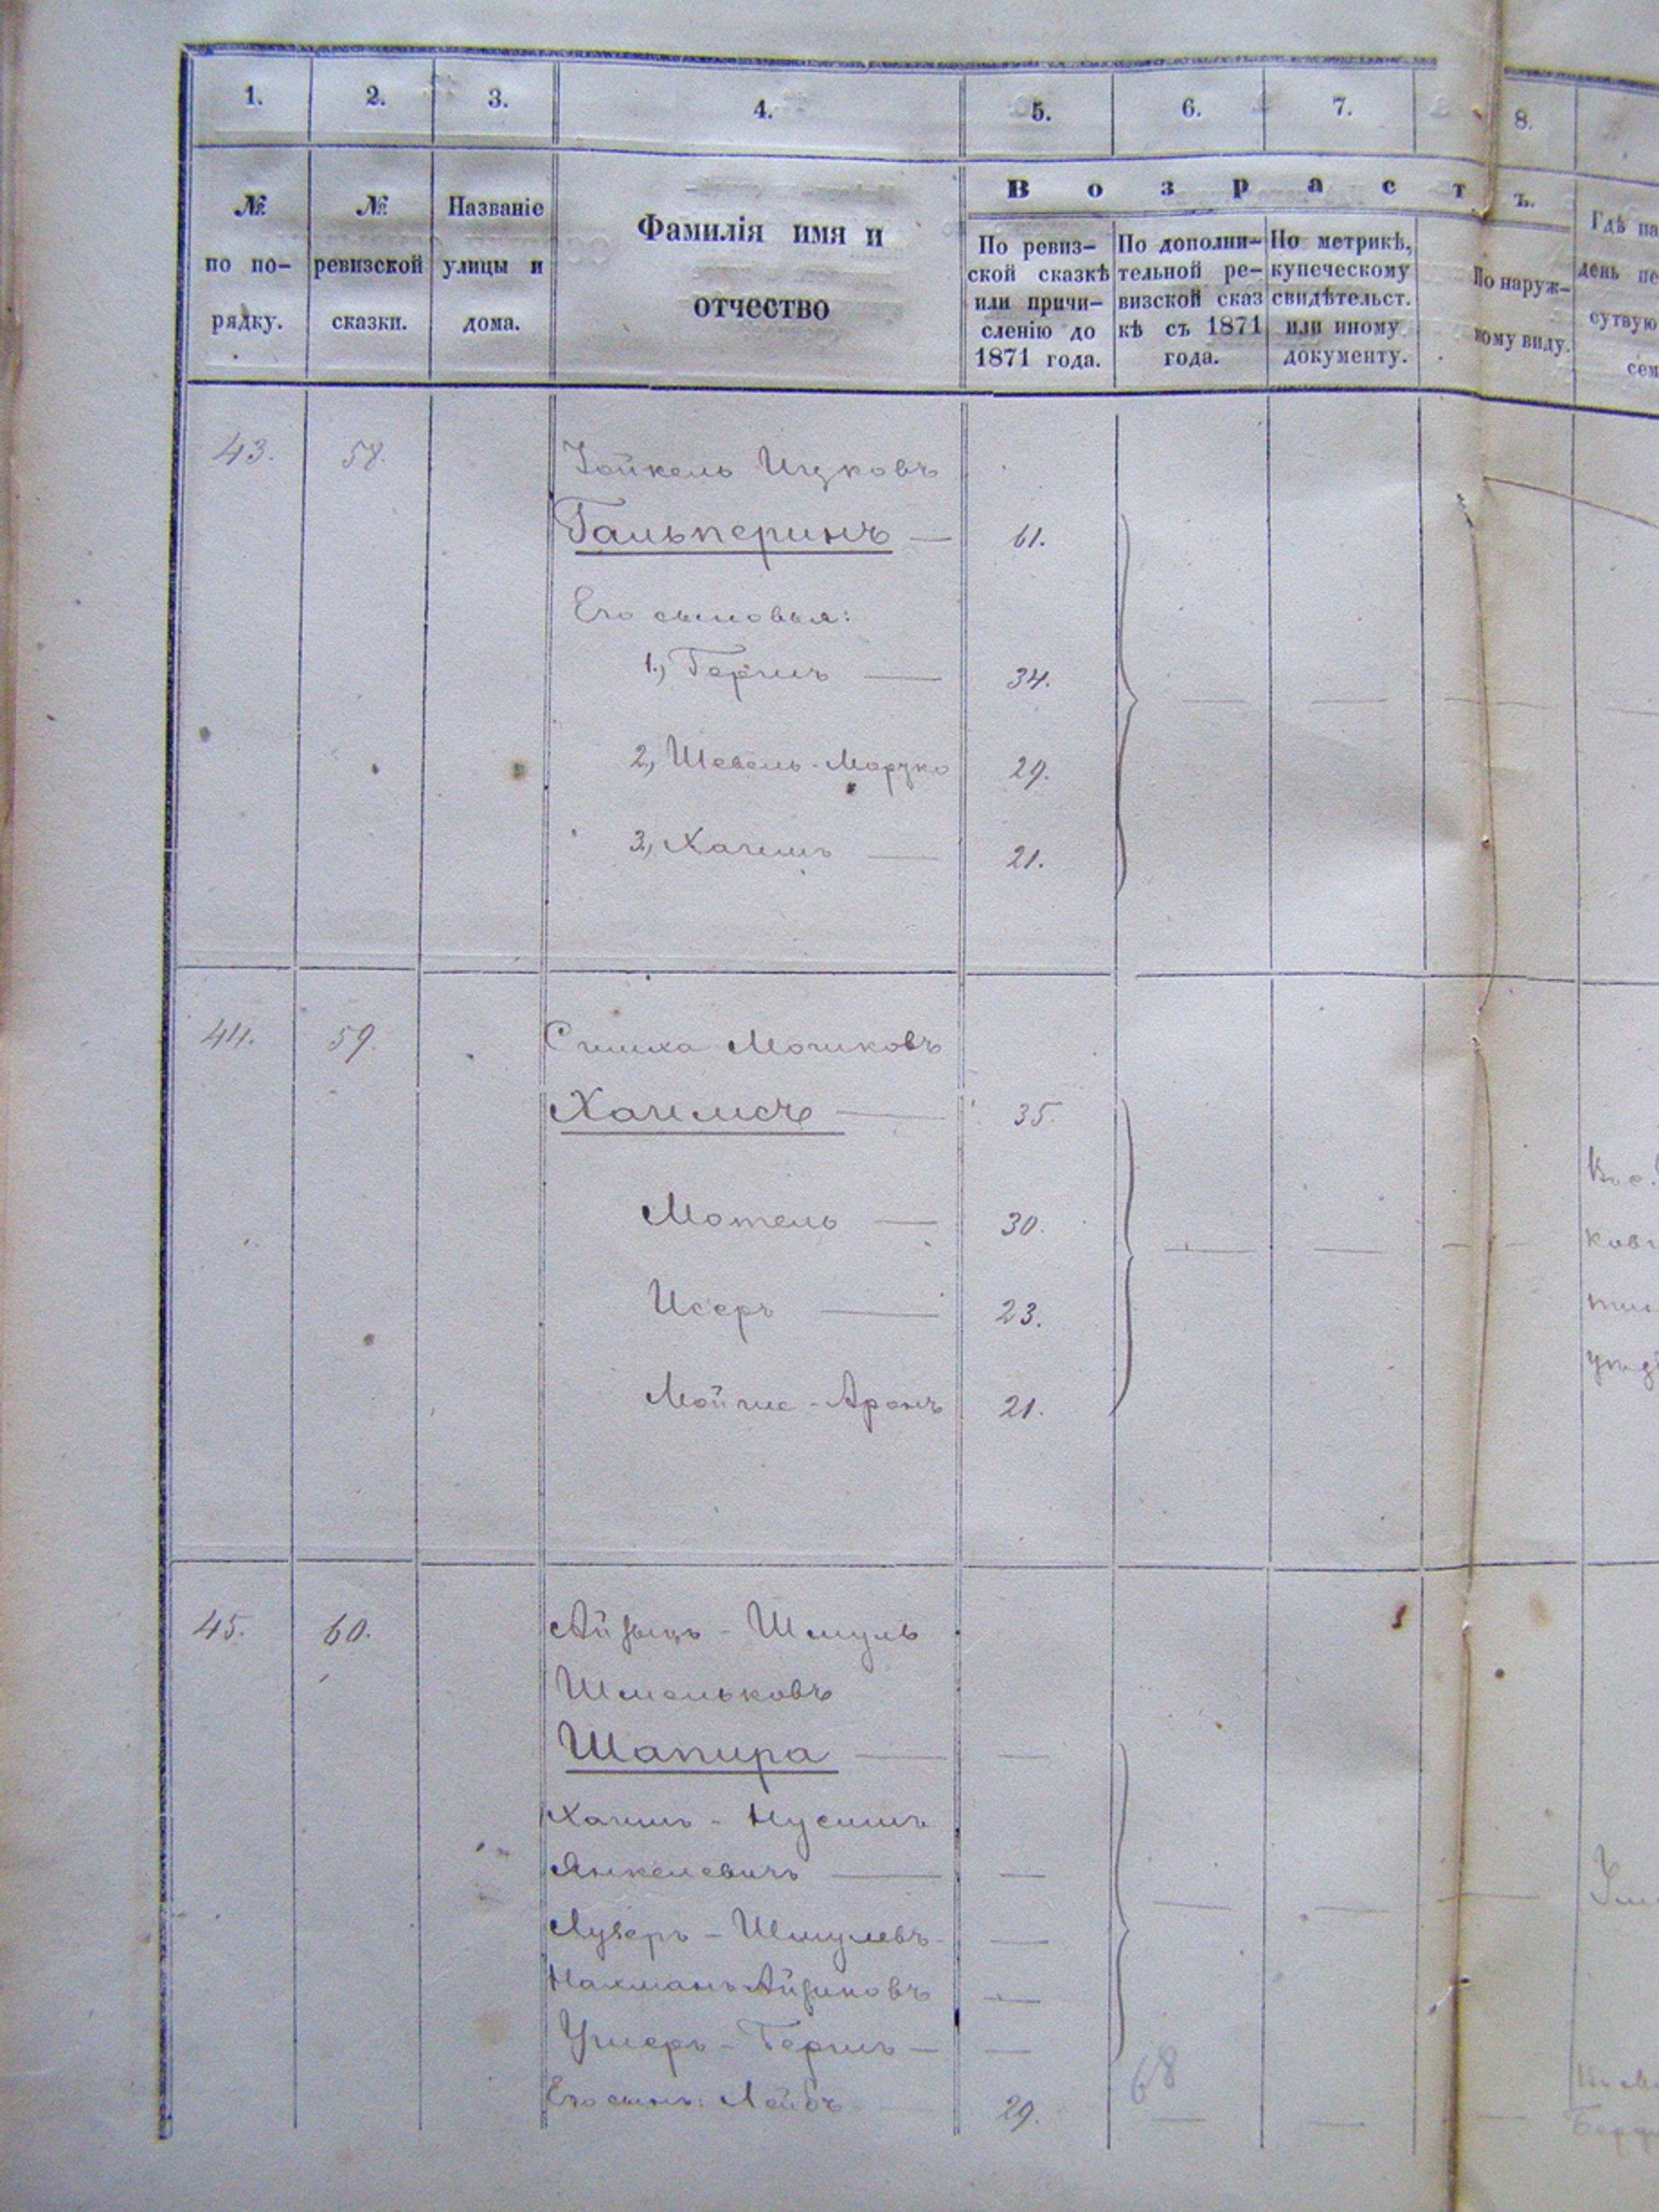 1. 2. 3. 4. 5. 6. 7. 8.
№ по по- рядку.
№ ревизской сказки.
Названіе улицы и дома.
Фамилія имя и
отчество
В о з р а с т ъ.
По ревиз-
ской сказкѣ
или причи-
сленію до
1871 года.
По дополни-
тельной ре-
визской сказ
кѣ съ 1871
года.
По метрикѣ,
купеческому
свидѣтельст.
или иному
документу.
По наруж-
ному виду.
Гдѣ на
день пе
сутвую
сем
43. 58. Іойкель Ицковъ
Гальперинъ — 61.
Его сыновья:
1., Гершъ — 34.
2., Шевель-Моруко 29.
3., Хаимъ — 21.
44. 59. Симха Мошковъ
Хаимсъ — 35.
Мотель — 30.
Исеръ — 23.
Мойше-Аронъ 21.
45. 60. Айзыцъ - Шмуль
Шмельковъ
Шапира — —
Хаимъ - Нусимъ
Янкелевичъ — —
Лузеръ - Шмулевъ - —
Нахманъ Айзиковъ —
Ушеръ - Гершъ — —
Его сынъ: Лейбъ 29.
68